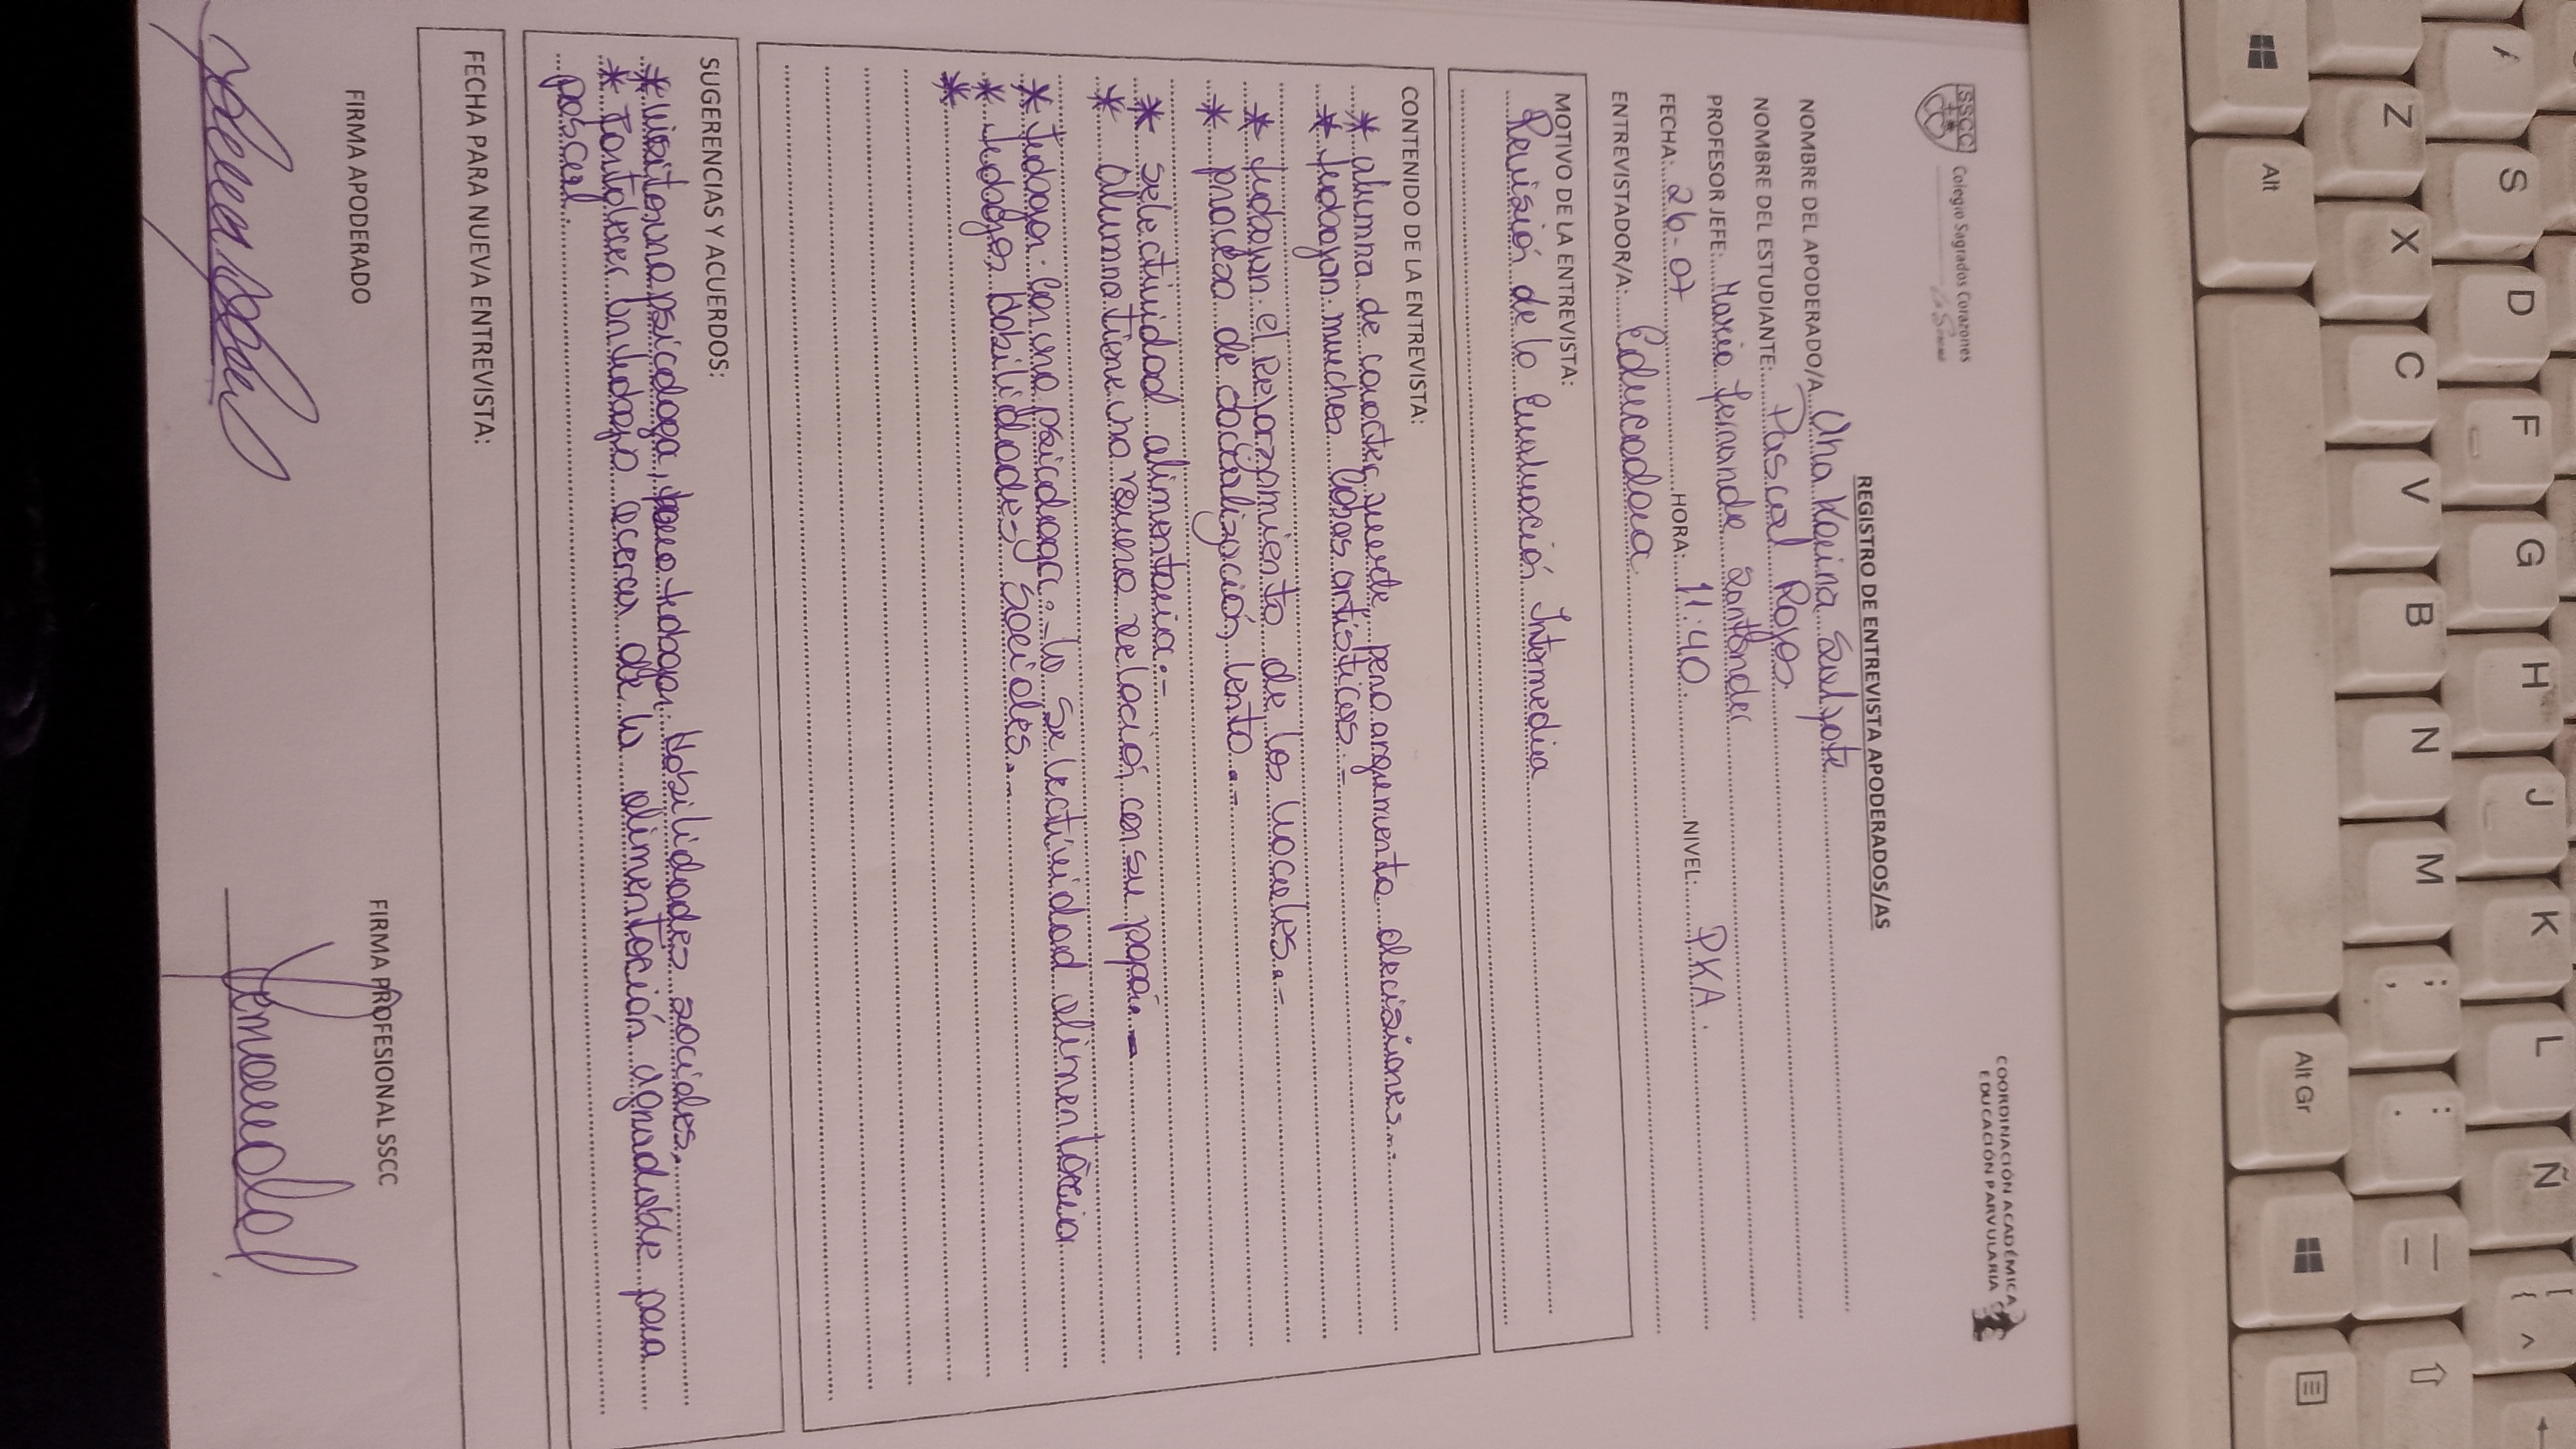 SSCC
Colegio Sagrados Corazones
COORDINACIÓN ACADÉMICA
EDUCACIÓN PARVULARIA
REGISTRO DE ENTREVISTA APODERADOS/AS
NOMBRE DEL APODERADO/A Ana Karina
NOMBRE DEL ESTUDIANTE: Pascal Rojas
PROFESOR JEFE: María Fernanda Santander
FECHA: 26-07 HORA: 11:40 NIVEL: PKA.
ENTREVISTADOR/A: Educadora
MOTIVO DE LA ENTREVISTA:
Revisión de la Evaluación Intermedia
CONTENIDO DE LA ENTREVISTA:
* alumna de carácter fuerte pero argumenta decisiones.-
* Trabajan muchas cosas artísticas.-
* Trabajan el reforzamiento de las vocales.-
* proceso de socialización, lento.-
* selectividad alimentaria.-
* alumna tiene una buena relación con su papá.-
* Trabajar con una psicóloga: - la selectividad alimentaria
* Trabajar habilidades sociales.-
*
SUGERENCIAS Y ACUERDOS:
* visitar una psicóloga, para trabajar habilidades sociales,
* Fortalecer un trabajo acerca de la alimentación agradable para
pascal.
FECHA PARA NUEVA ENTREVISTA:
FIRMA APODERADO
FIRMA PROFESIONAL SSCC
/
Z
S
Alt
X
D
C
F
V
G
B
H
N
J
M
K
;
,
L
Alt Gr
:
.
Ñ
_
-
[
{
^